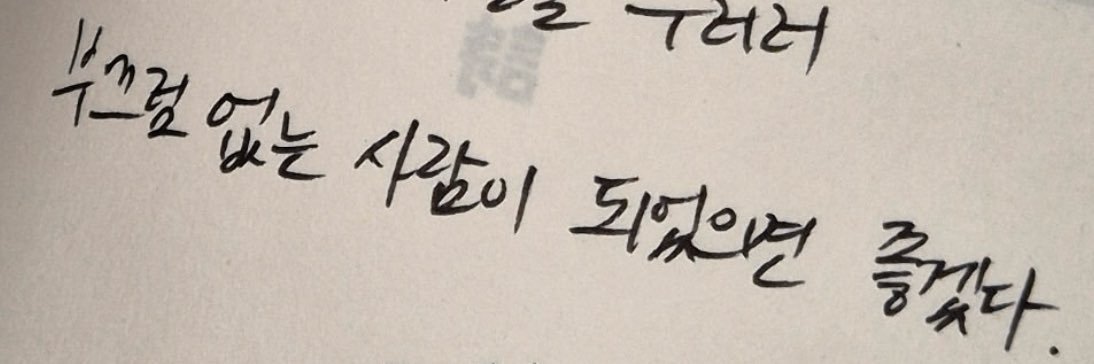 우러러
부끄럼 없는 사람이 되었으면 좋겠다.